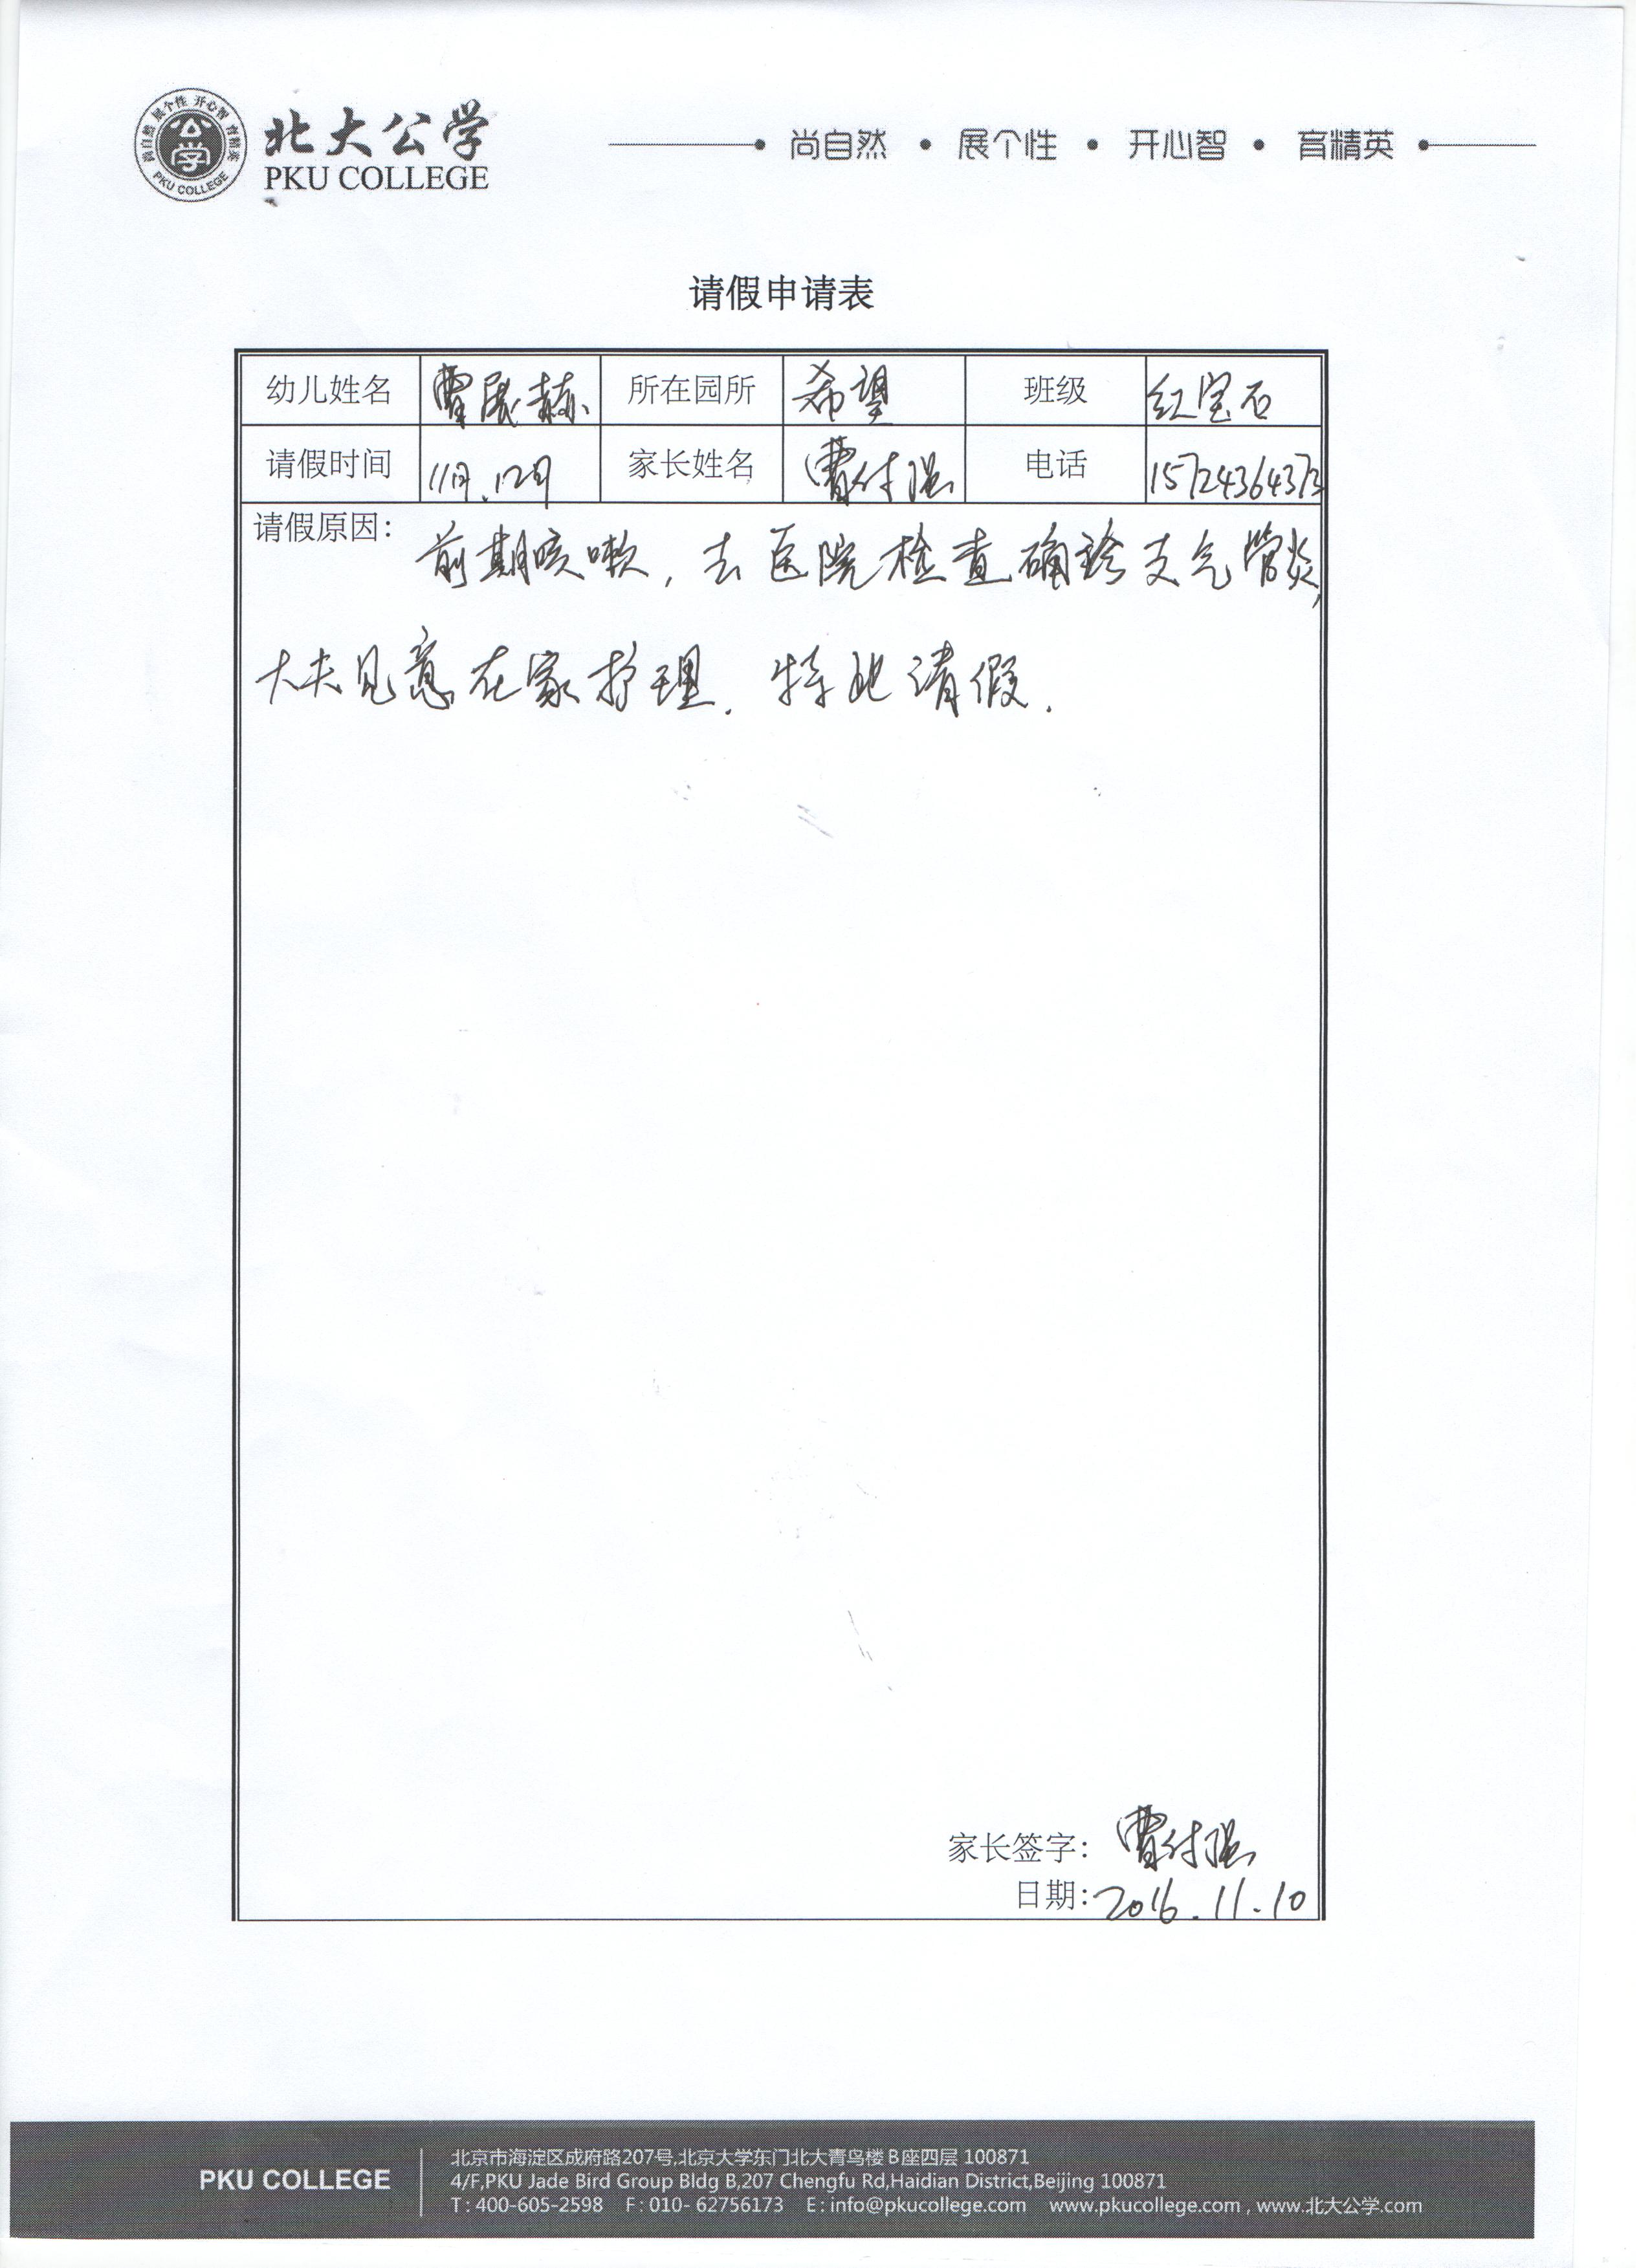 尚自然 展个性 开心智 育精英
PKU COLLEGE
学
北大公学
PKU COLLEGE
尚自然 • 展个性 • 开心智 • 育精英
请假申请表
幼儿姓名 曹展赫 所在园所 希望 班级 红宝石
请假时间 11月、12月 家长姓名 曹付强 电话 15724364373
请假原因:
前期咳嗽，去医院检查确珍支气管炎，
大夫见意在家护理．特此请假．
家长签字: 曹付强
日期: 2016.11.10
PKU COLLEGE
北京市海淀区成府路207号,北京大学东门北大青鸟楼B座四层 100871
4/F,PKU Jade Bird Group Bldg B,207 Chengfu Rd,Haidian District,Beijing 100871
T : 400-605-2598 F : 010- 62756173 E : info@pkucollege.com www.pkucollege.com , www.北大公学.com